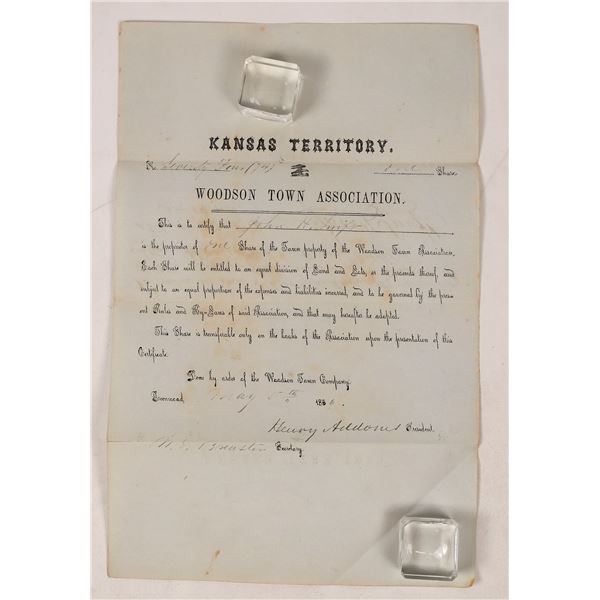 KANSAS TERRITORY.
No. Seventy Four (74) One Share.
WOODSON TOWN ASSOCIATION.
This is to certify that John H.
is the proprietor of One Share of the Town property of the Woodson Town Association,
Each Share will be entitled to an equal division of Land and Lots, or the proceeds thereof, and
subject to an equal proportion of the expenses and liabilities incurred, and to be governed by the pres-
ent Rules and By-Laws of said Association, and that may hereafter be adopted.
This Share is transferable only on the books of the Association upon the presentation of this
Certificate.
Done by order of the Woodson Town Company.
Tecumseh, May 5th 1856.
Henry Addoms President.
Secretary.